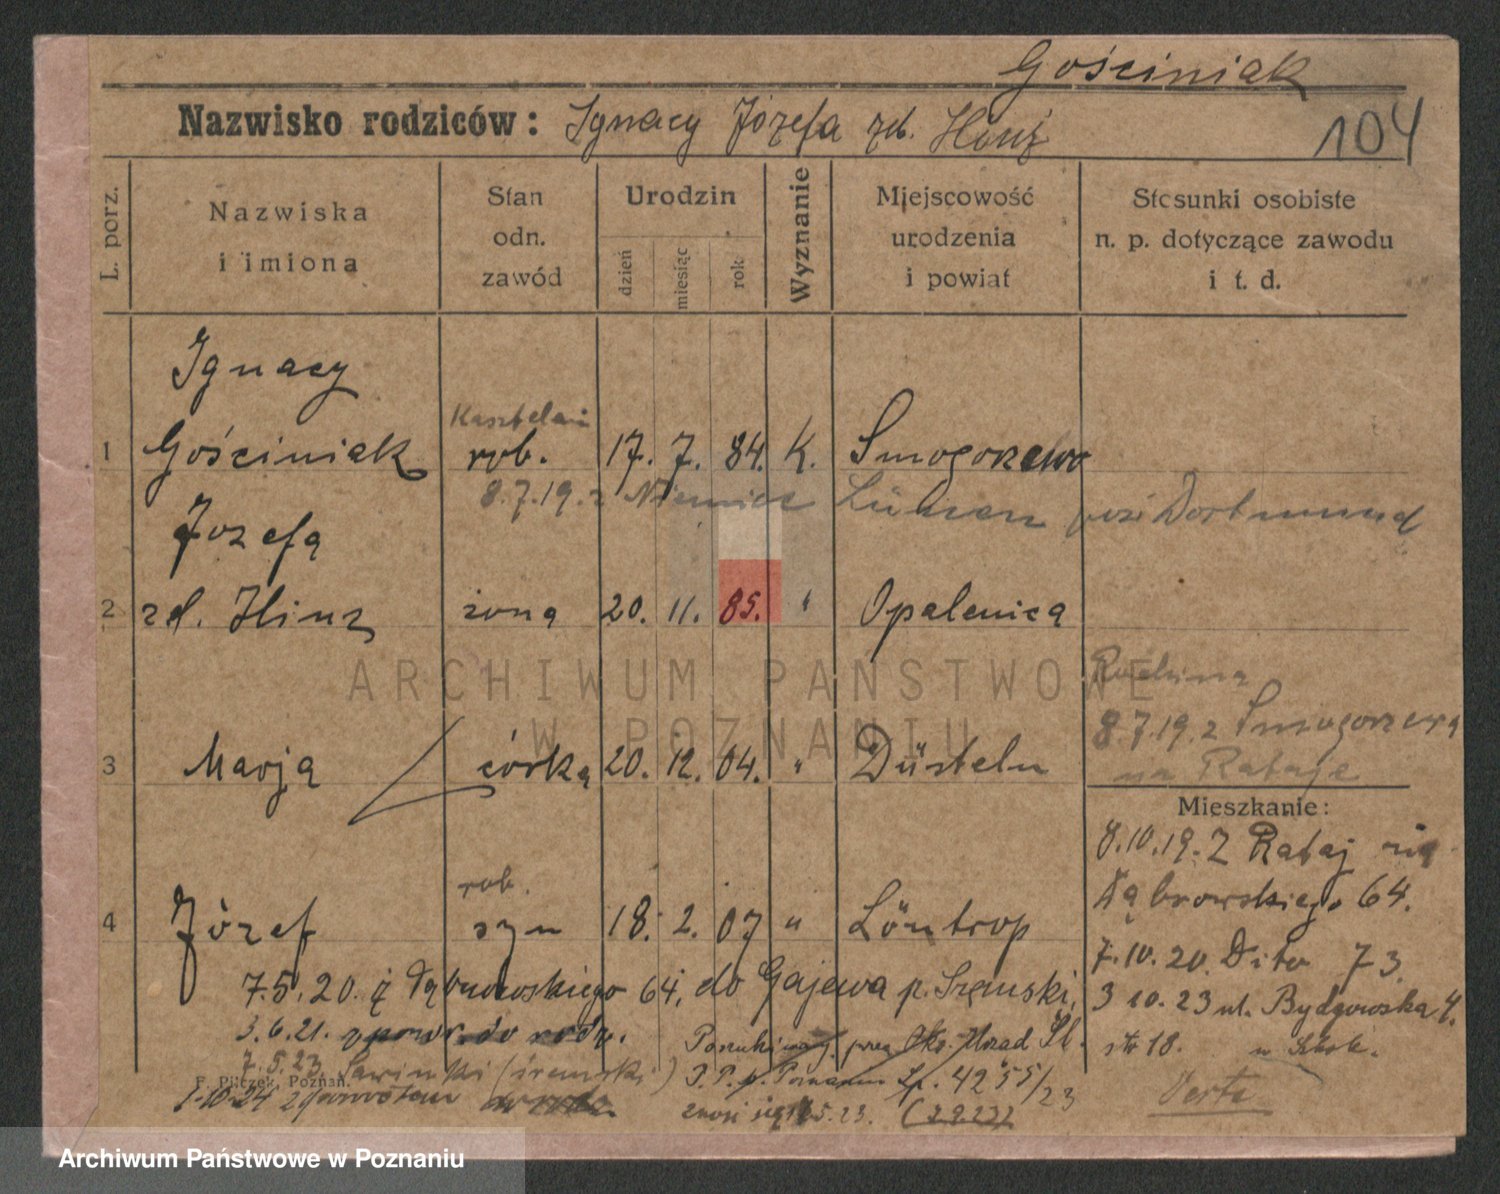 Gościniak
Nazwisko rodziców: Ignacy Józefa zd. 104
L. porz.
Nazwiska i imiona
Stan odn. zawód
Urodzin
dzień miesiąc rok
Wyznanie
Miejscowość urodzenia i powiat
Stosunki osobiste n. p. dotyczące zawodu i t. d.
Ignacy
1 Gościniak rob. 17. 7. 84. K. Smogorzewo
8.7.19. z Niemiec Lünen Dortmund
Józefa
2 zd. Hinz żona 20. 11. 85. " Opalenica
Rodzina
8.7.19. z Smogorzewa
na Rataje
3 Marja córka 20. 12. 04. " Düsteln
Mieszkanie:
8.10.19. Z Rataj
Dąbrowskiego 64.
rob.
4 Józef syn 18. 2. 07 " Löntrop
7.10.20. Dito 73.
7.5.20. z Dąbrowskiego 64, do Gajewa p. Śremski,
3 10.23 ul. Bydgowska 4.
3.6.21. do rodz.
18.
7.5.23. (śremski)
P. P. p. Poznaniu 4255/23
F. Pilczek, Poznań.
1-10-24
5.23. (2.9.23)
Verte
ARCHIWUM PAŃSTWOWE
W POZNANIU
Archiwum Państwowe w Poznaniu